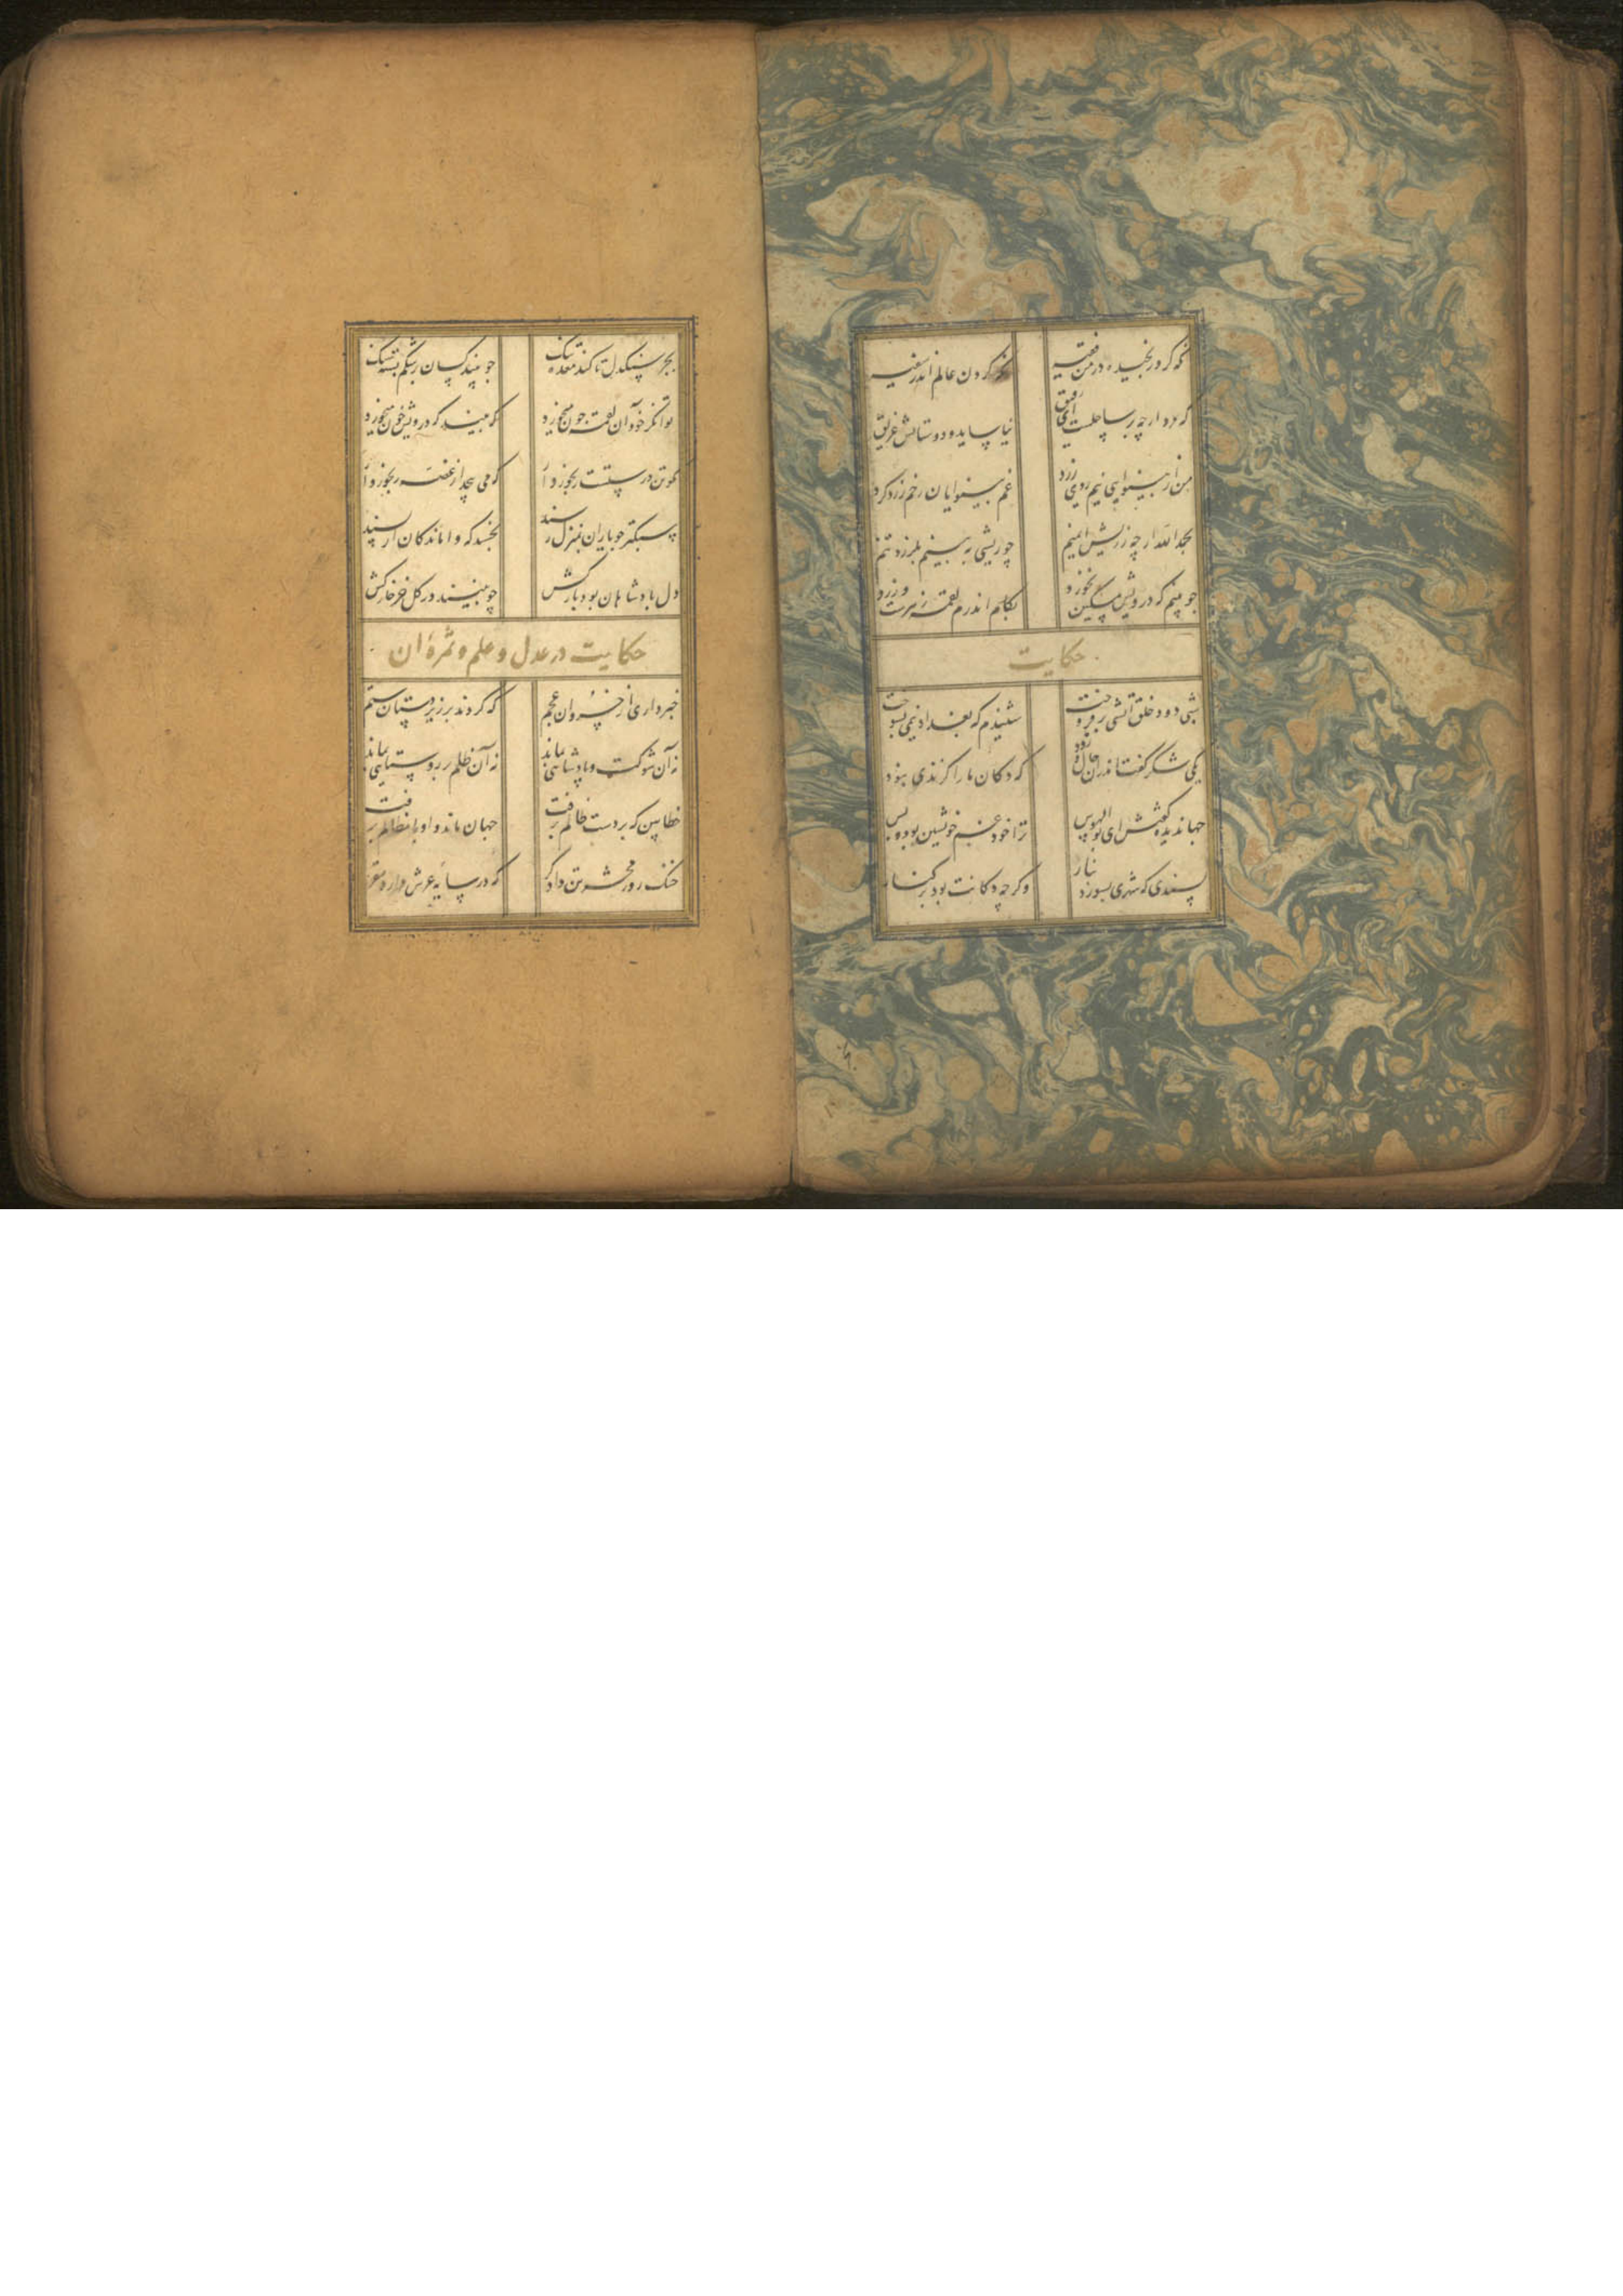 نگه کرد رنجیده در من فقیه
نگه کردن عالم اندر سفیه
که مرد ارچه بر ساحلست ای رفیق
نیاساید و دوستانش غریق
من از بینوایی نیم روی زرد
غم بینوایان رخم زرد کرد
بحمدالله ارچه ز ریش ایمنم
چو ریشی به بینم بلرزد تنم
چو بینم که درویش مسکین نخورد
بکام اندرم لقمه زهرست و درد
حکایت
شبی دود خلق آتشی برفروخت
شنیدم که بغداد نیمی بسوخت
یکی شکر گفت اندران حال زود
که دکان ما را گزندی نبود
جهاندیده گفتش ای بوالهوس
ترا خود غم خویشتن بود و بس
پسندی که شهری بسوزد بنار
وگرچه دکانت بود بر کنار
بجز سنگدل تا کند معده تنگ
چو بیند کسان بر شکم بسته سنگ
توانگر خود آن لقمه چون میخورد
که بیند که درویش خون میخورد
مگو تن درستست رنجور دار
که می پیچد از غصه رنجور وار
سبکتر چو یاران بمنزل رسند
نخسبد که واماندگان از پسند
دل پادشاهان بود بارکش
چو بینند در گل خر خارکش
حکایت در عدل و علم و ثمرهٔ آن
خبر داری از خسروان عجم
که کردند بر زیردستان ستم
نه آن شوکت و پادشاهی بماند
نه آن ظلم بر روستایی بماند
خطا بین که بر دست ظالم برفت
جهان ماند و او با مظالم برفت
خنک روز محشر تن دادگر
که در سایه عرش دارد مقر